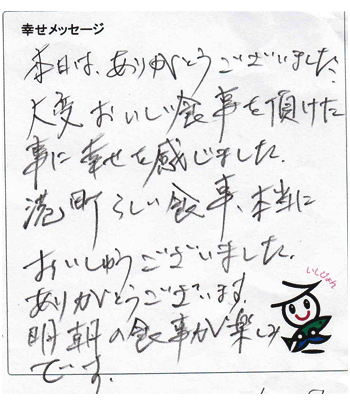 幸せメッセージ
本日は、ありがとうございました.
大変おいしい食事を頂けた
事に幸せを感じました.
港町らしい食事、本当に
おいしゅうございました.
ありがとうございます.
明朝の食事が楽しみ
です.